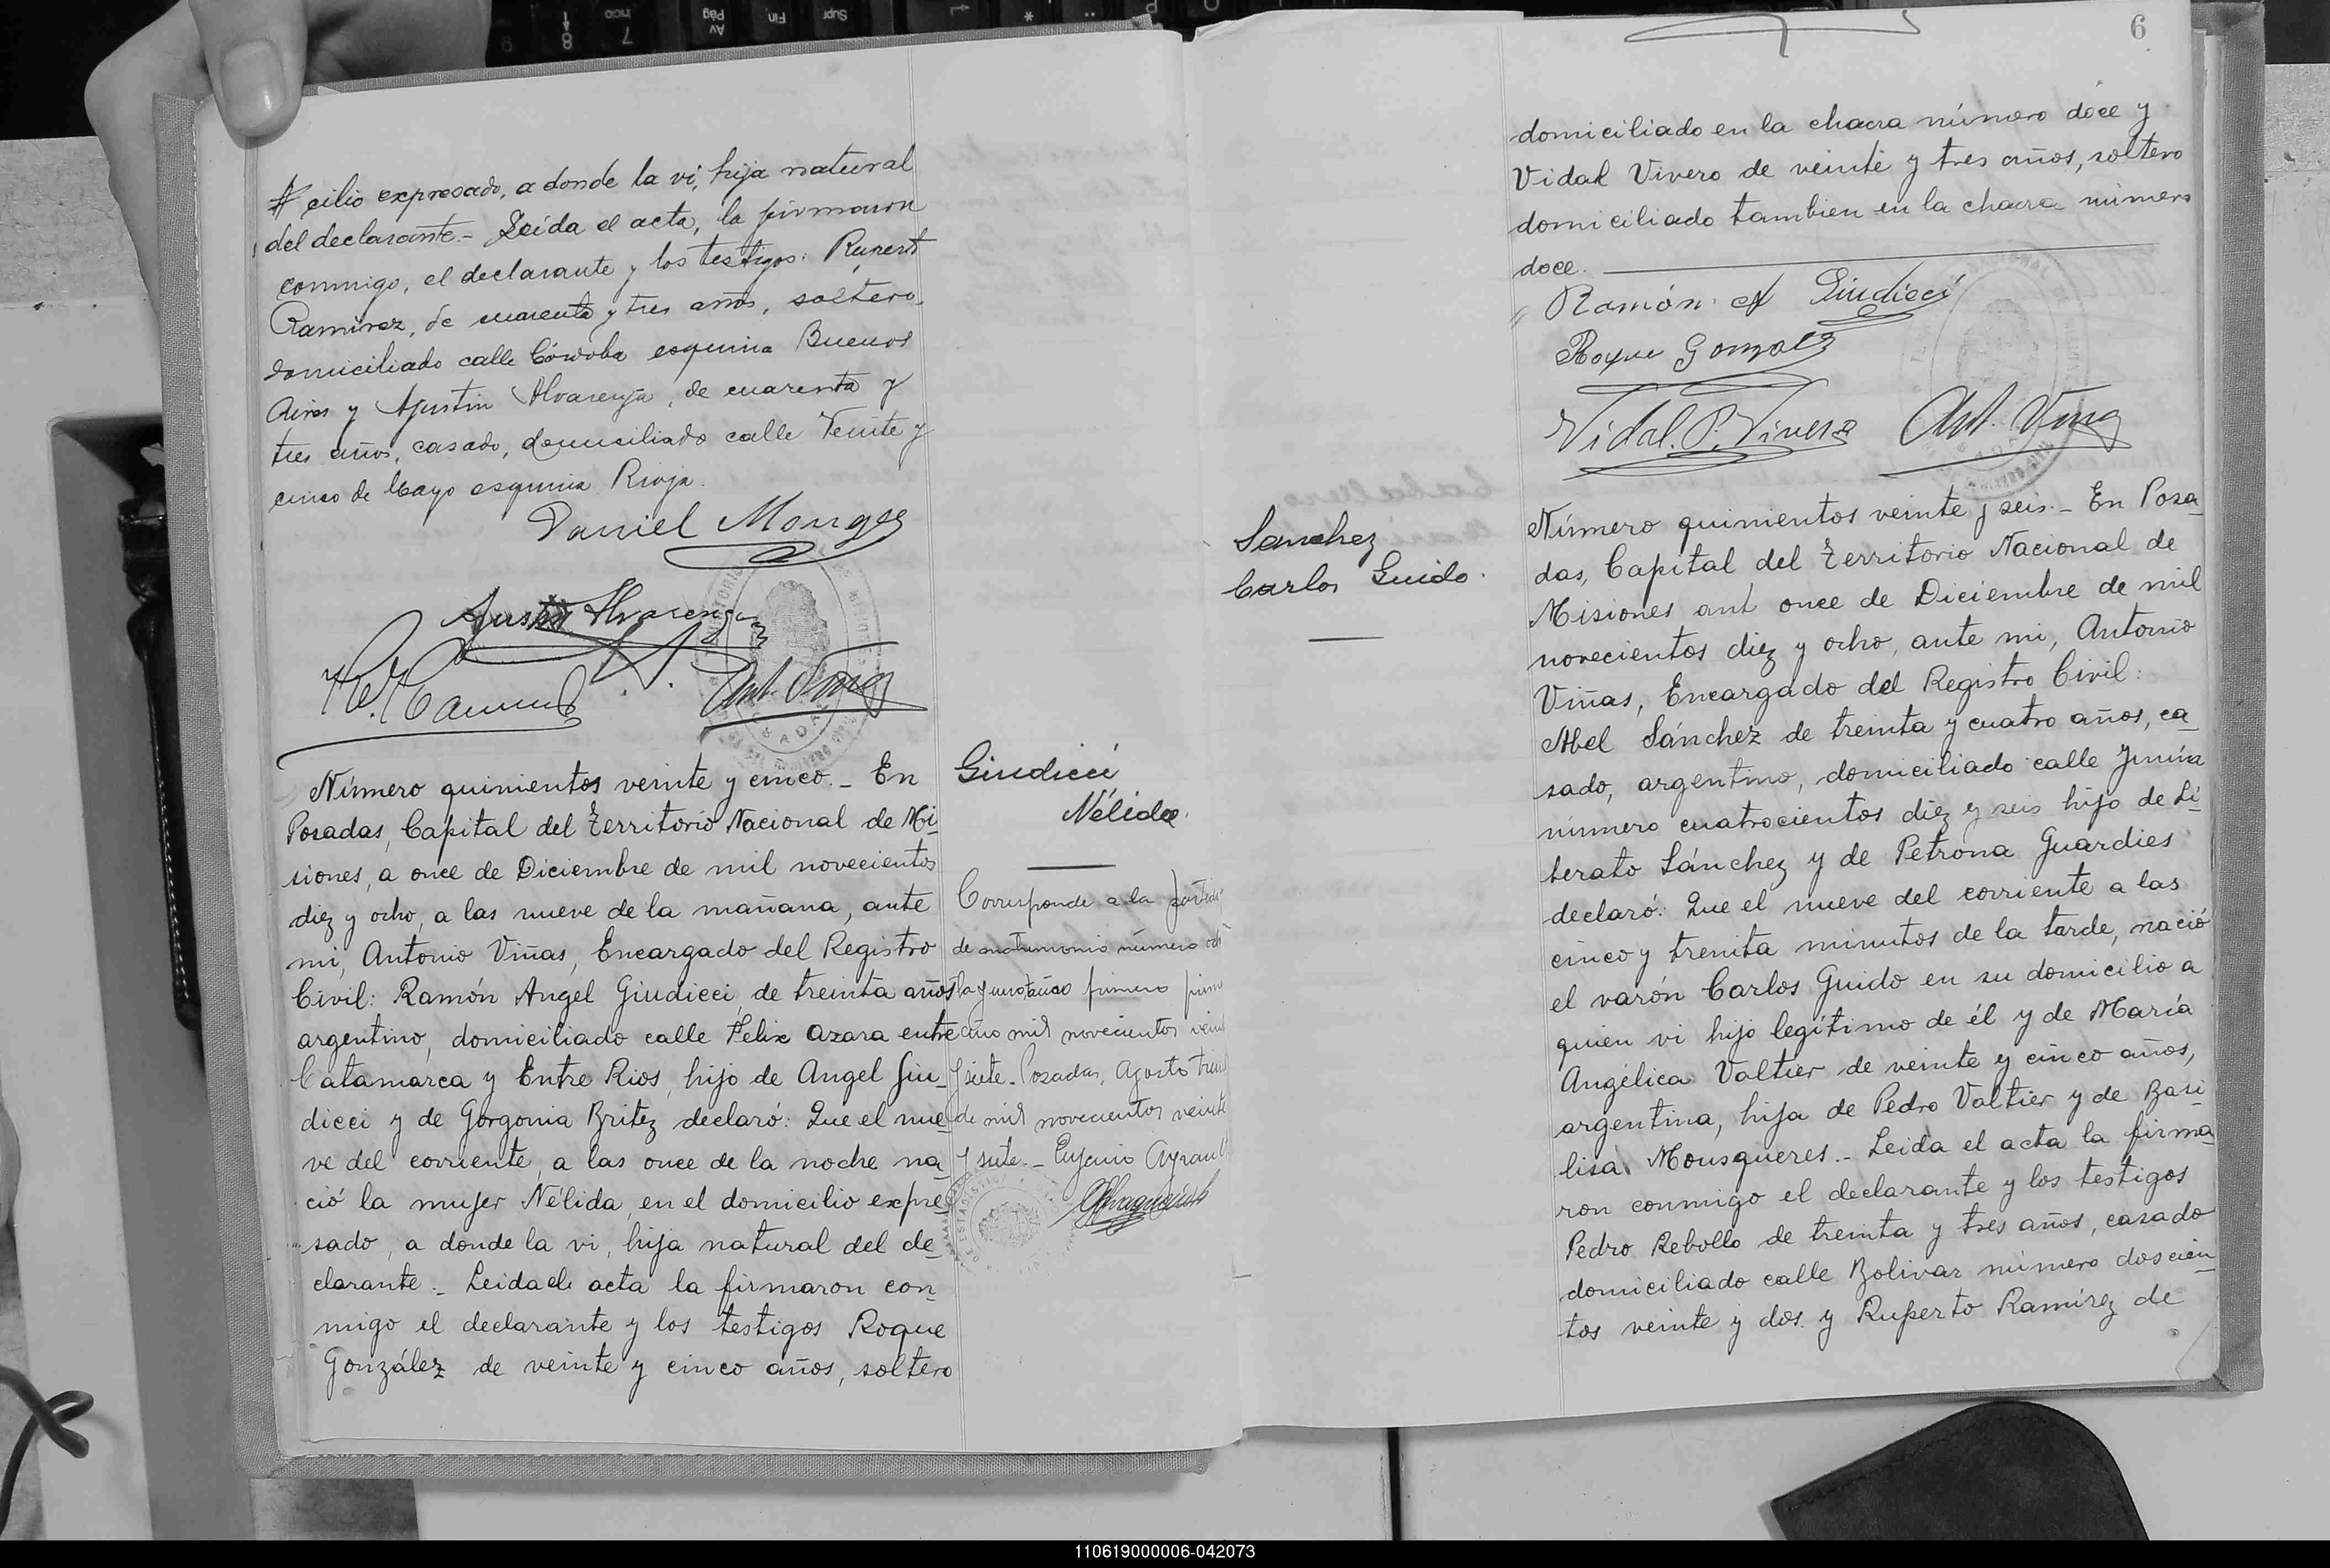 cilio expresado, a donde la vi, hija natural
del declarante.- Leida el acta, la firmaron
conmigo, el declarante y los testigos: Rupert
Ramirez, de cuarenta y tres años, soltero,
domiciliado calle Córdoba esquina Buenos
Aires y Agustin Alvarenga, de cuarenta y
tres años, casado, domiciliado calle Veinte y
cinco de Mayo esquina Rioja.
Daniel Monges
Agustin Alvarenga
R. Ramirez
Ant. Viñas
Número quinientos veinte y cinco.- En
Posadas, Capital del Territorio Nacional de Mi-
siones, a once de Diciembre de mil novecientos
diez y ocho, a las nueve de la mañana, ante
mi, Antonio Viñas, Encargado del Registro
Civil: Ramón Angel Giudicci, de treinta años
argentino, domiciliado calle Felix Azara entre
Catamarca y Entre Rios, hijo de Angel Giu-
dicci y de Gorgonia Britez declaró: Que el nue-
ve del corriente, a las once de la noche na-
ció la mujer Nélida, en el domicilio expre-
sado, a donde la vi, hija natural del de-
clarante.- Leida el acta la firmaron con-
migo el declarante y los testigos Roque
González de veinte y cinco años, soltero
Giudicci
Nélida.
Corresponde a la partida
de matrimonio número
primero
año mil novecientos veint
y siete.- Posadas, Agosto
de mil novecientos veinte
y siete.- Eugenio
6
domiciliado en la chacra número doce y
Vidal Vivero de veinte y tres años, soltero
domiciliado tambien en la chacra número
doce.
Ramón A Giudicci
Roque Gonzalez
Vidal. P. Vivero
Ant. Viñas
Sanchez
Carlos Guido.
Número quinientos veinte y seis.- En Posa-
das, Capital del Territorio Nacional de
Misiones ant once de Diciembre de mil
novecientos diez y ocho, ante mi, Antonio
Viñas, Encargado del Registro Civil:
Abel Sánchez de treinta y cuatro años, ca-
sado, argentino, domiciliado calle Junín
número cuatrocientos diez y seis hijo de Li-
berato Sánchez y de Petrona Guardies
declaró: Que el nueve del corriente a las
cinco y treinta minutos de la tarde, nació
el varón Carlos Guido en su domicilio a
quien vi hijo legítimo de él y de María
Angélica Valtier de veinte y cinco años,
argentina, hija de Pedro Valtier y de Basi-
lisa Mousqueres.- Leida el acta la firma-
ron conmigo el declarante y los testigos
Pedro Rebollo de treinta y tres años, casado
domiciliado calle Bolivar número doscien-
tos veinte y dos. y Ruperto Ramírez de
110619000006-042073